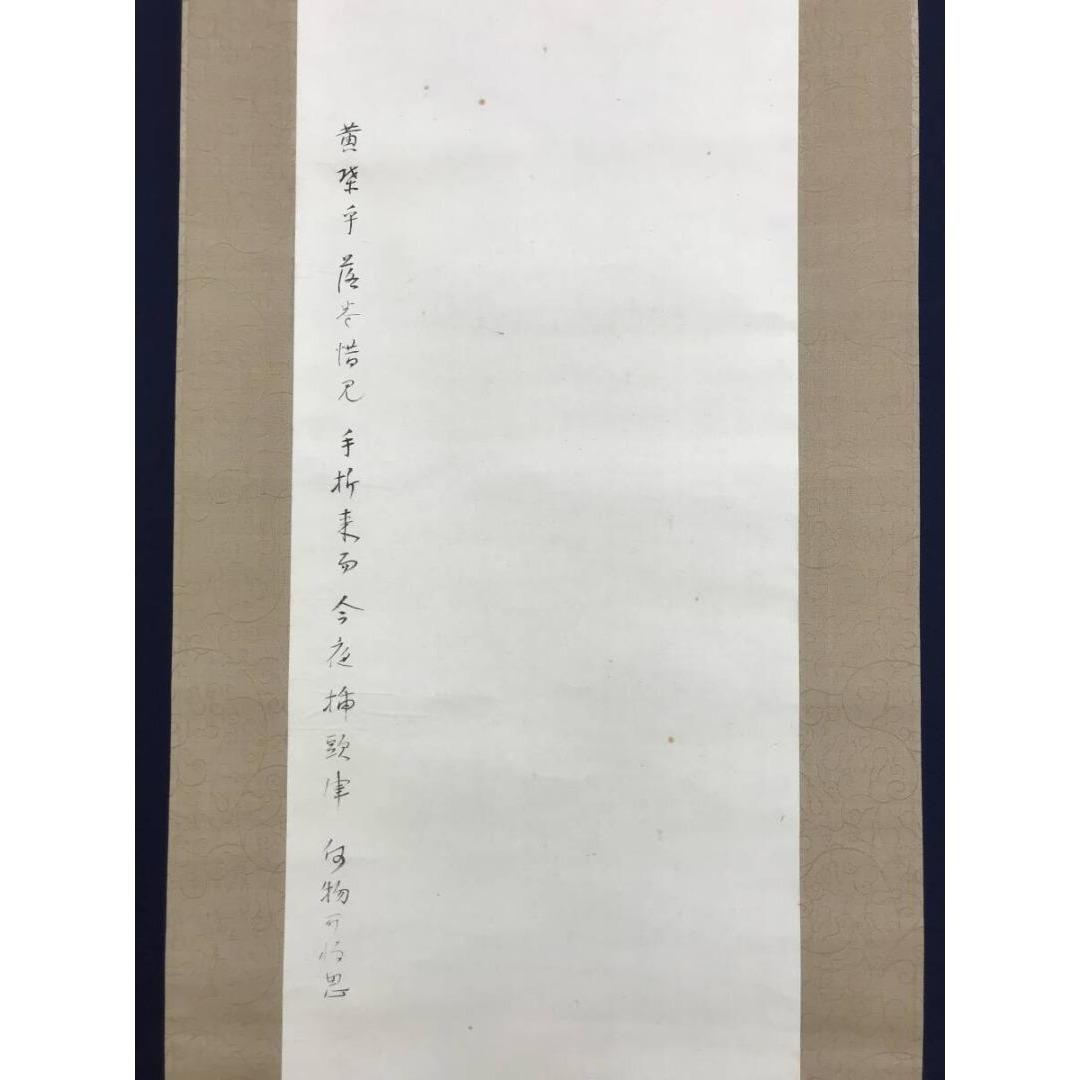 黄葉乎落巻惜見 手折来而今夜挿頭津 何物可将思